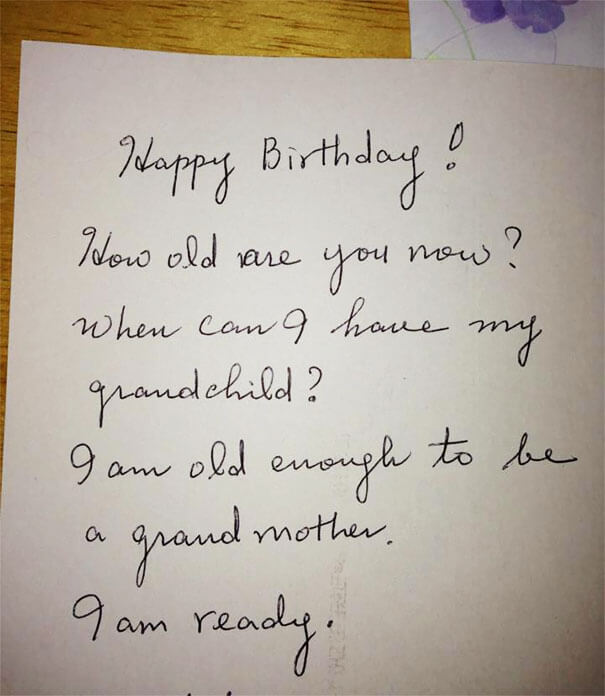 Happy Birthday!
How old are you now?
When can I have my
grandchild?
I am old enough to be
a grand mother.
I am ready.